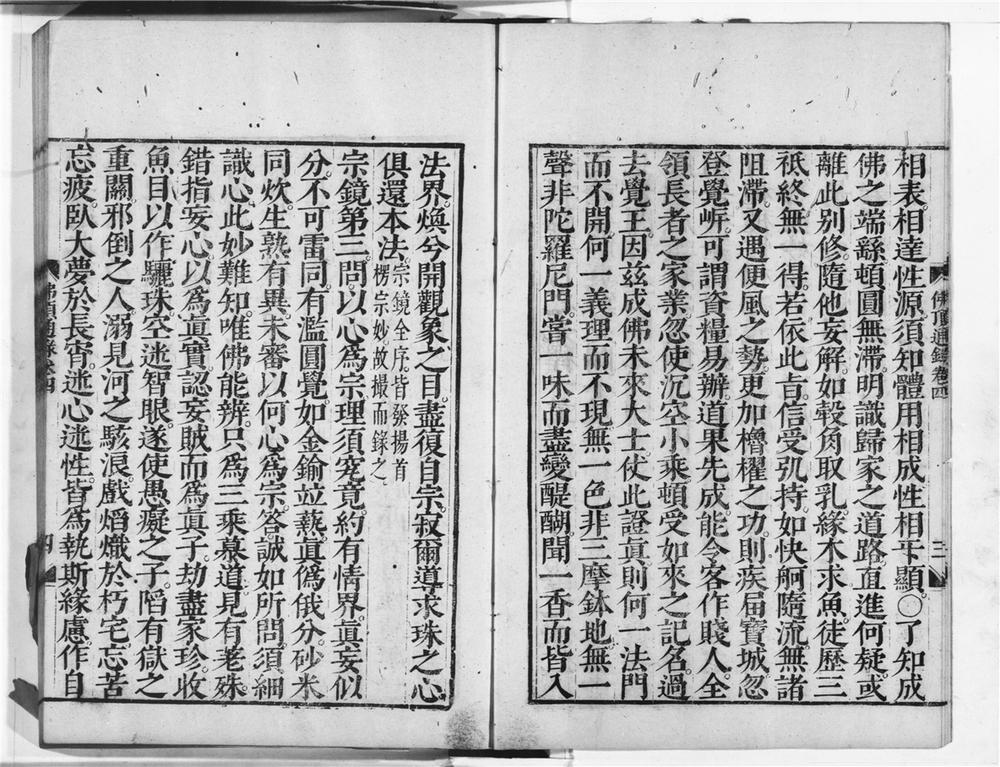 相表相達性源須知體用相成性相㸦顯○了知成
佛之端繇頓圓無滯明識歸家之道路直進何疑或
離此别修隨他妄解如𣫘角取乳緣木求魚徒歷三
祇終無一得若依此旨信受弘持如快舸隨流無諸
阻滯又遇便風之勢更加櫓櫂之功則疾届寶城忽
登覺岍可謂資糧易辦道果先成能令客作賤人全
領長者之家業忽使沉空小乘頓受如來之記名過
去覺王因兹成佛未來大士仗此證真則何一法門
而不開何一義理而不現無一色非三摩鉢地無一
聲非陀羅尼門嘗一味而盡變醍醐聞一香而皆入
佛頂通錄卷四
三
法界煥兮開觀象之目盡復自宗寂爾導求珠之心
俱還本法宗鏡全序皆發揚首
楞宗妙故撮而錄之
宗鏡第三問以心為宗理須究竟約有情界真妄似
分不可雷同有濫圓覺如金鍮竝爇真偽俄分砂米
同炊生熟有異未審以何心為宗答誠如所問須細
識心此妙難知唯佛能辨只為三乘慕道見有差殊
錯指妄心以為真實認妄賊而為真子劫盡家珍收
魚目以作驪珠空迷智眼遂使愚癡之子陷有獄之
重關邪倒之人溺見河之駭浪戲㷔熾於朽宅忘苦
忘疲臥大夢於長宵迷心迷性皆為執斯緣慮作自
佛頂通錄卷四
四